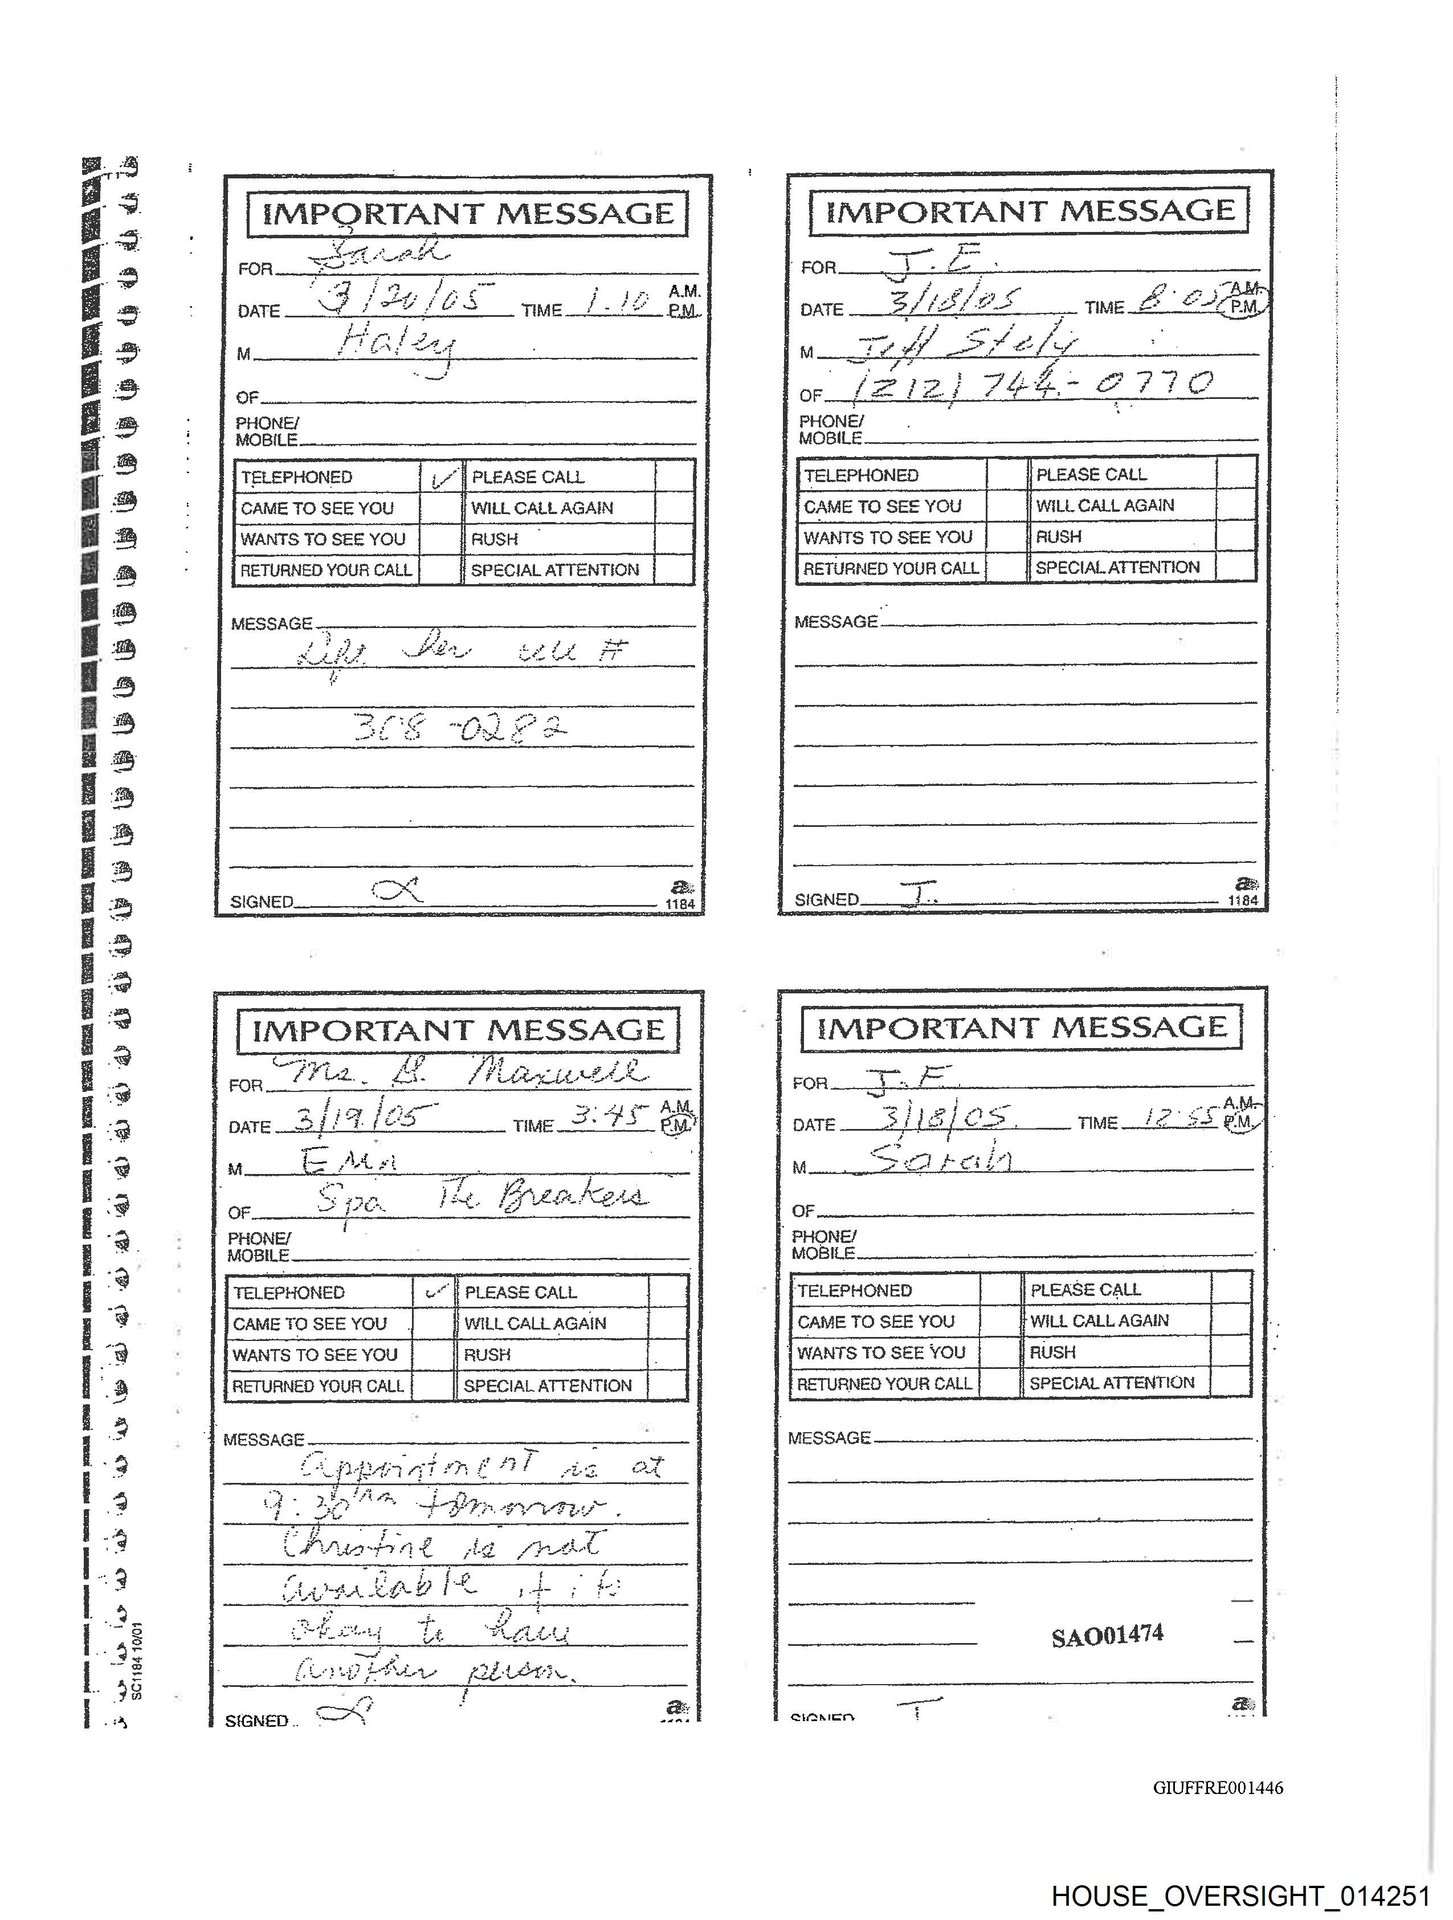 IMPORTANT MESSAGE
FOR Sarah
DATE 3/20/05 TIME 1.10 A.M. P.M.
M Haley
OF
PHONE/
MOBILE
TELEPHONED ✓ PLEASE CALL
CAME TO SEE YOU WILL CALL AGAIN
WANTS TO SEE YOU RUSH
RETURNED YOUR CALL SPECIAL ATTENTION
MESSAGE
her #
308-0282
SIGNED
1184
IMPORTANT MESSAGE
FOR J.E.
DATE 3/18/05 TIME 8:05 A.M. P.M.
M Jeff
OF (212) 744-0770
PHONE/
MOBILE
TELEPHONED PLEASE CALL
CAME TO SEE YOU WILL CALL AGAIN
WANTS TO SEE YOU RUSH
RETURNED YOUR CALL SPECIAL ATTENTION
MESSAGE
SIGNED J.
1184
IMPORTANT MESSAGE
FOR Ms. G. Maxwell
DATE 3/19/05 TIME 3:45 A.M. P.M.
M Erin
OF Spa The Breakers
PHONE/
MOBILE
TELEPHONED ✓ PLEASE CALL
CAME TO SEE YOU WILL CALL AGAIN
WANTS TO SEE YOU RUSH
RETURNED YOUR CALL SPECIAL ATTENTION
MESSAGE
Appointment is at
9:30 tomorrow.
Christine is not
available if its
okay to have
another person.
SIGNED
IMPORTANT MESSAGE
FOR J.E.
DATE 3/18/05 TIME 12:55 A.M. P.M.
M Sarah
OF
PHONE/
MOBILE
TELEPHONED PLEASE CALL
CAME TO SEE YOU WILL CALL AGAIN
WANTS TO SEE YOU RUSH
RETURNED YOUR CALL SPECIAL ATTENTION
MESSAGE
SAO01474
SIGNED J
SC1184 10/01
GIUFFRE001446
HOUSE_OVERSIGHT_014251